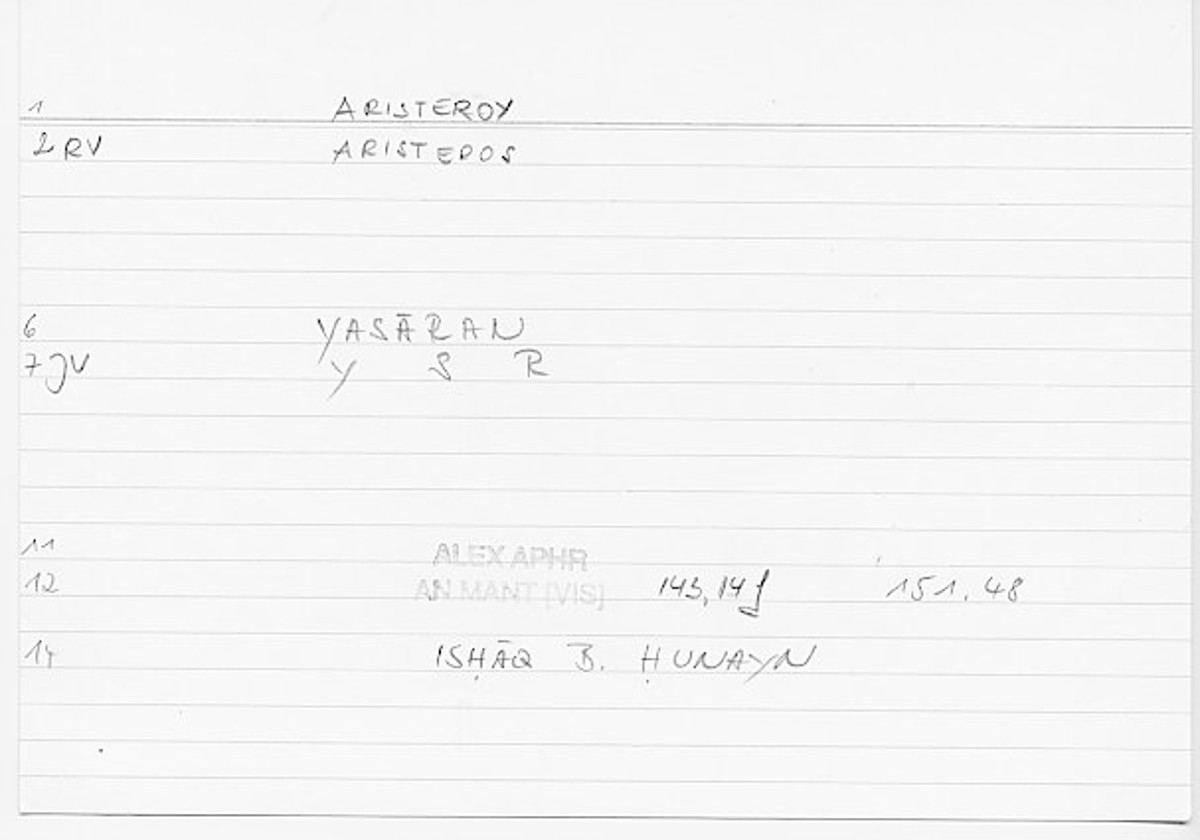 1 ARISTEROY
2 RV ARISTEROS
6 YASĀRAN
7 JV Y S R
11 ALEX APHR
12 AN MANT [VIS] 143,14f 151.48
14 ISḤĀQ B. ḤUNAYN